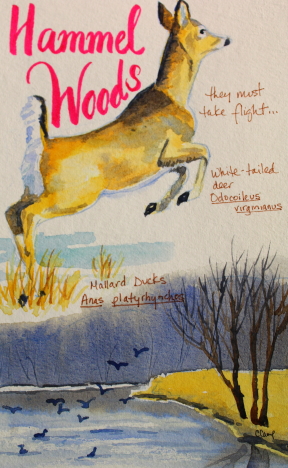 Hammel
Woods
they must
take flight...
White-tailed
deer
Odocoileus
virginianus
Mallard Ducks
Anas platyrhynchos